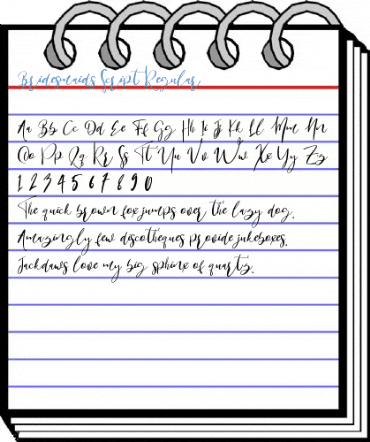 Bridesmaids Script Regular
Aa Bb Cc Dd Ee Ff Gg Hh Ii Jj Kk Ll Mm Nn
Oo Pp Qq Rr Ss Tt Uu Vv Ww Xx Yy Zz
1 2 3 4 5 6 7 8 9 0
The quick brown fox jumps over the lazy dog.
Amazingly few discotheques provide jukeboxes.
Jackdaws love my big sphinx of quartz.